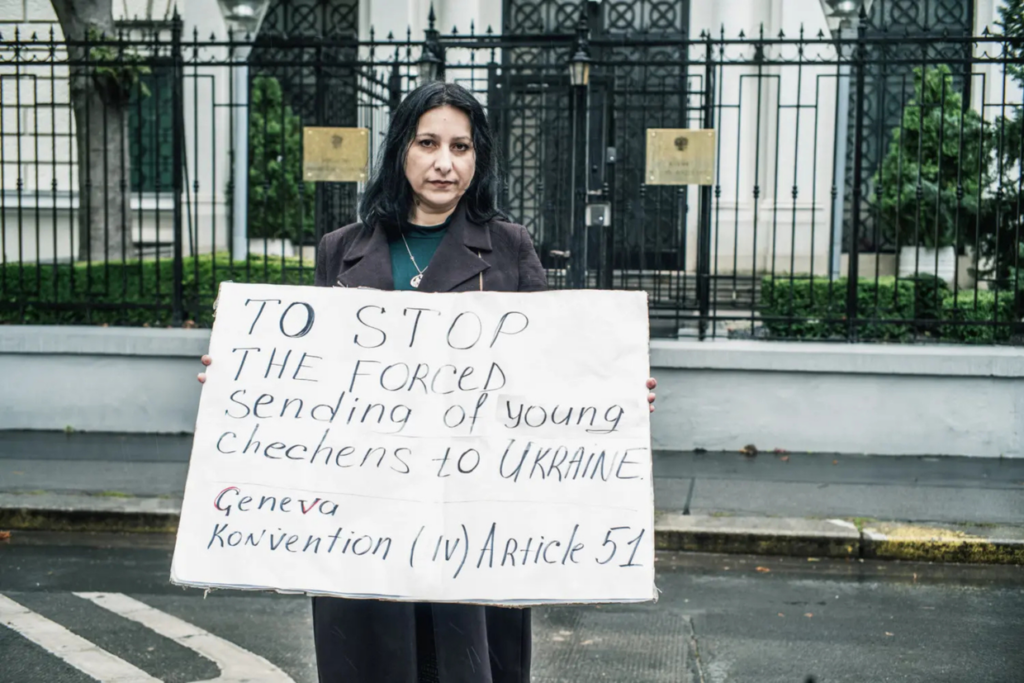 TO STOP
THE FORCED
Sending of young
chechens to UKRAINE.
Geneva
Konvention (IV) Article 51